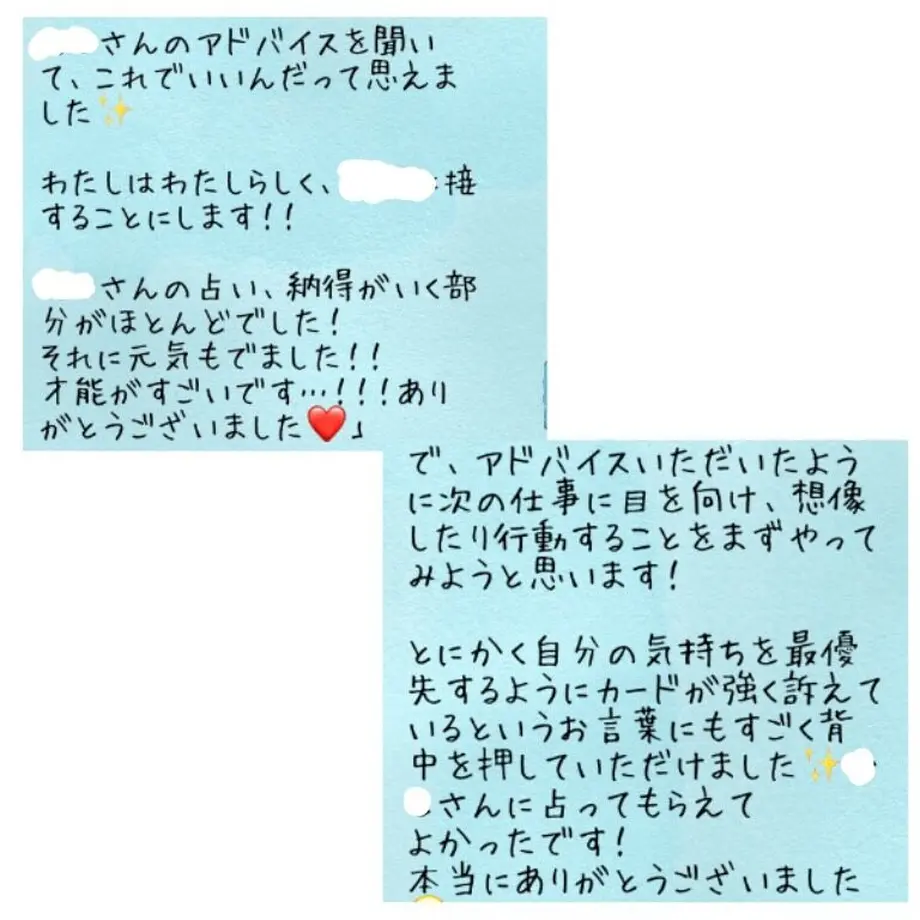 さんのアドバイスを聞い
て、これでいいんだって思えま
した✨
わたしはわたしらしく、接
することにします!!
さんの占い、納得がいく部
分がほとんどでした!
それに元気もでました!!
才能がすごいです…!!!あり
がとうございました❤️」
で、アドバイスいただいたよう
に次の仕事に目を向け、想像
したり行動することをまずやって
みようと思います!
とにかく自分の気持ちを最優
先するようにカードが強く訴えて
いるというお言葉にもすごく背
中を押していただけました✨
さんに占ってもらえて
よかったです!
本当にありがとうございました